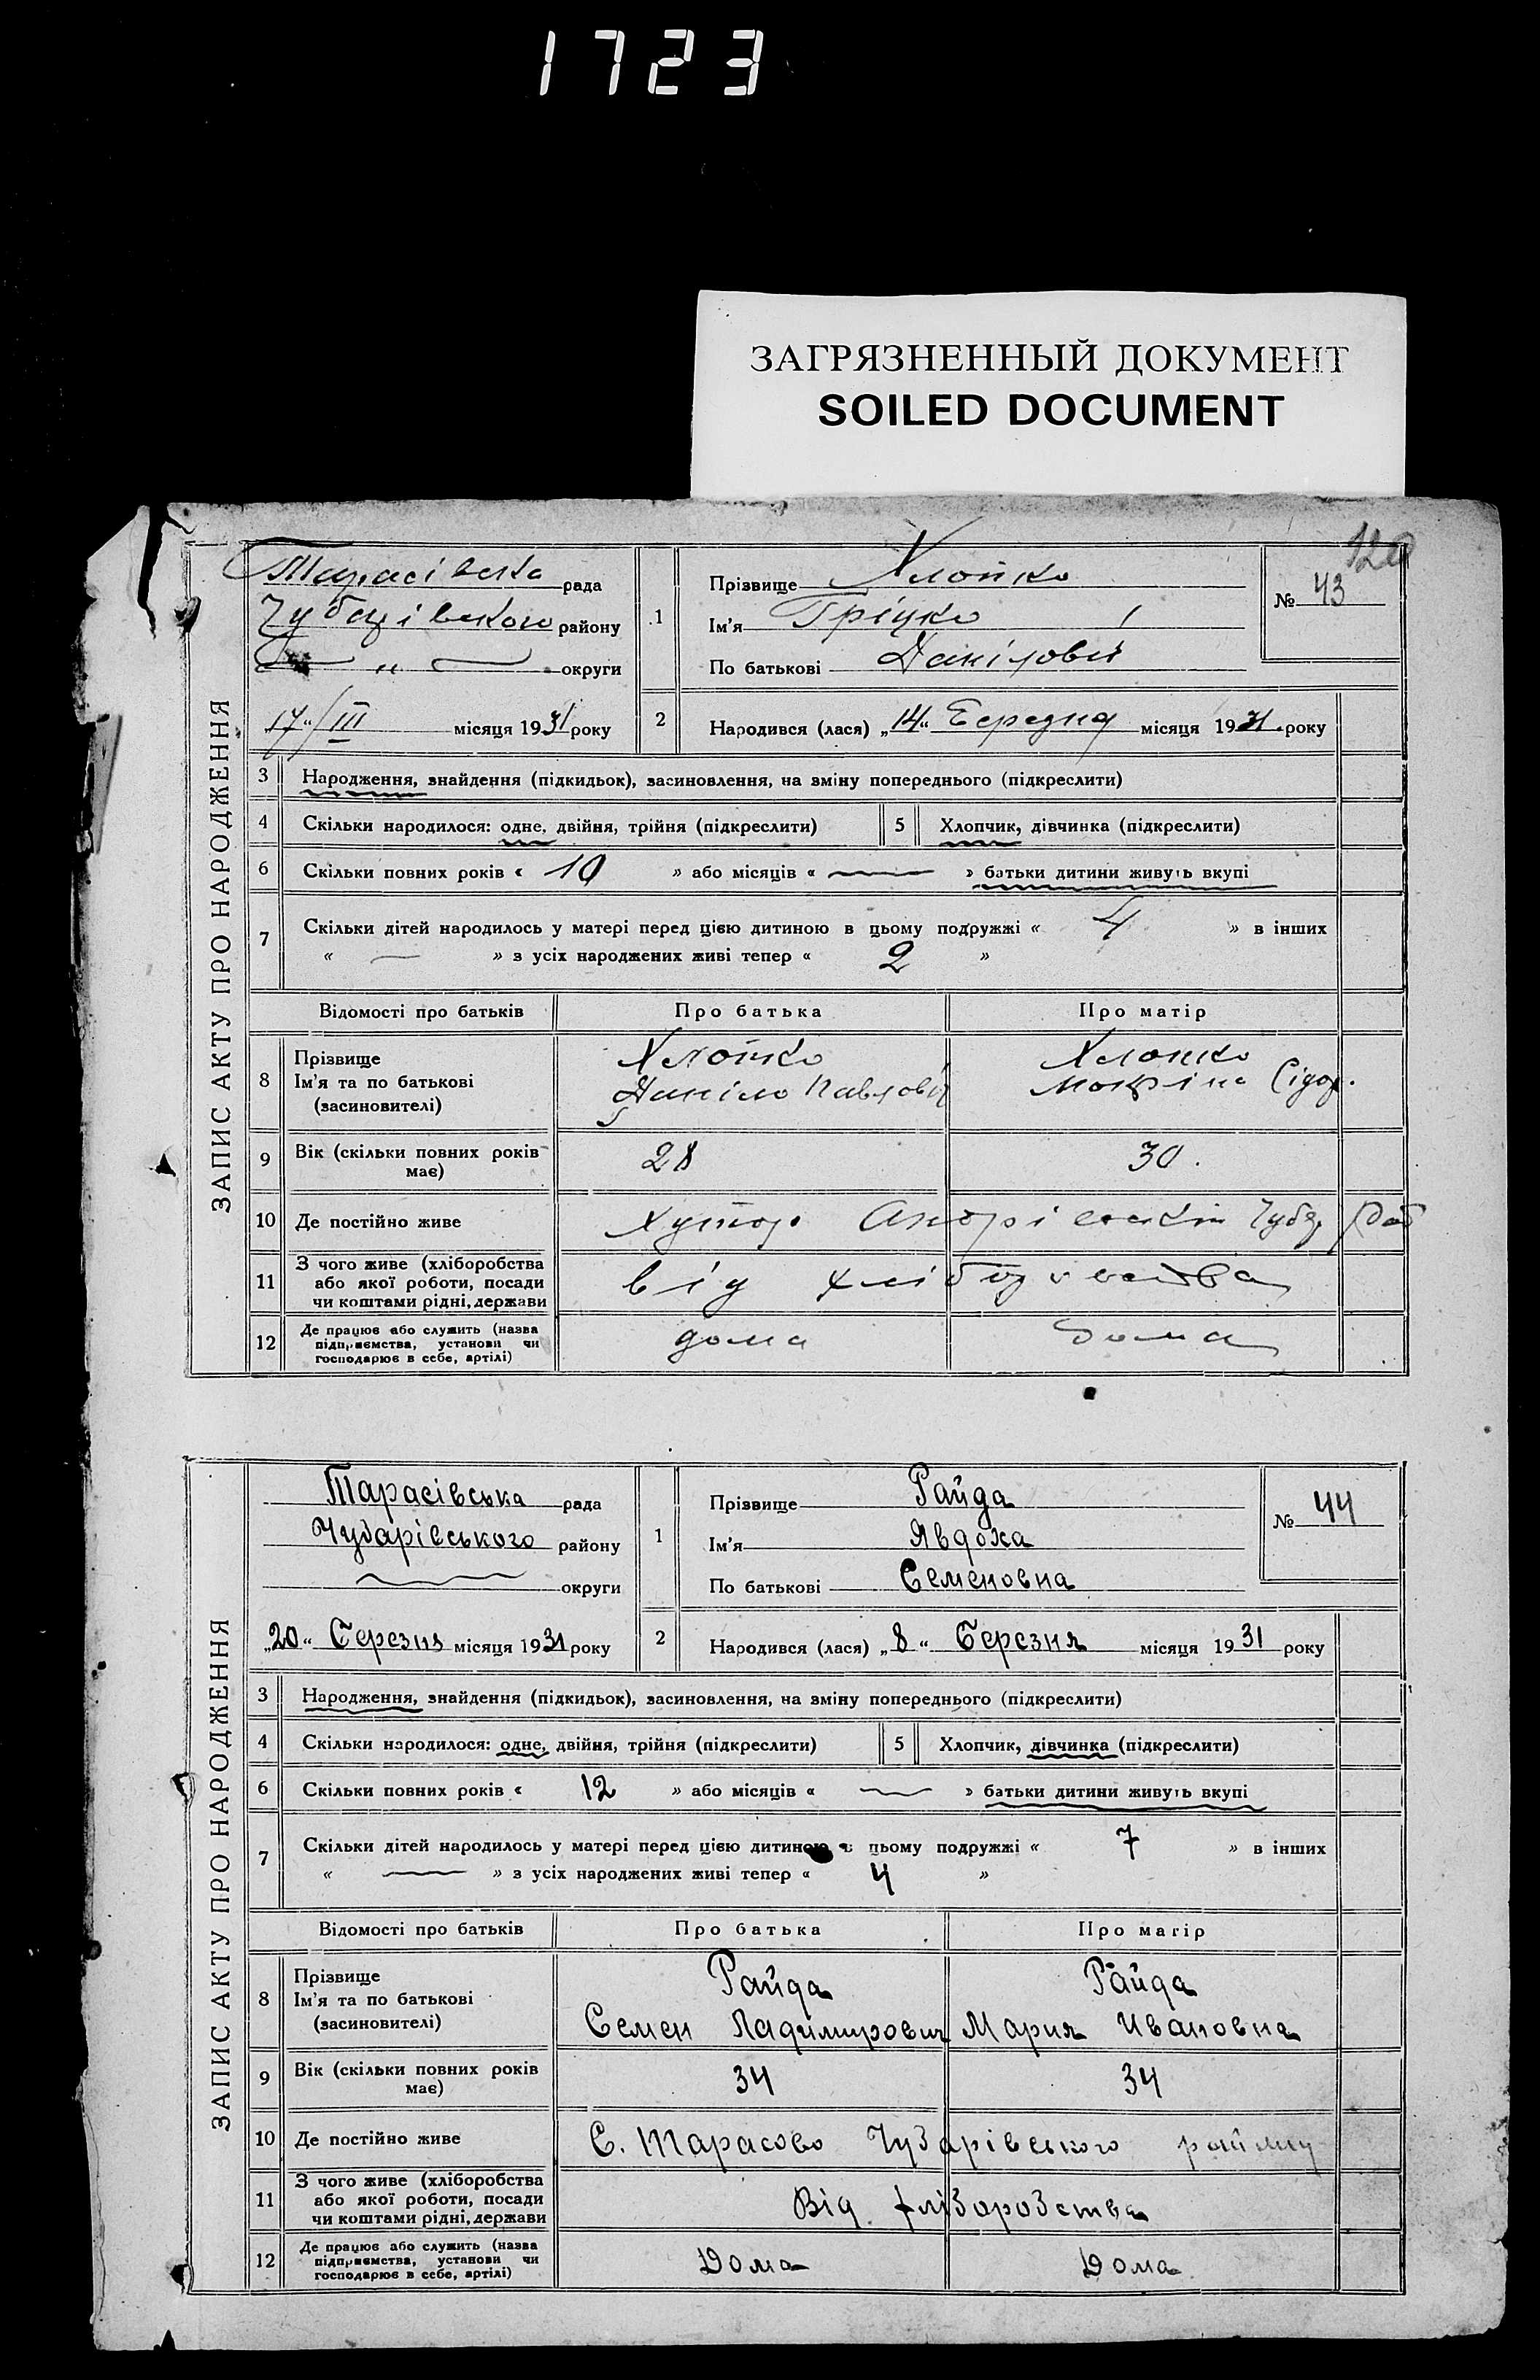 1723
ЗАГРЯЗНЕННЫЙ ДОКУМЕНТ
SOILED DOCUMENT
120
ЗАПИС АКТУ ПРО НАРОДЖЕННЯ
Тарасівська рада
району
„ округи
17“/III місяця 1931 року
1
Прізвище Хлопко
Ім'я Гріцко
По батькові Данілови
№ 43
2
Народився (лася) „14“ Березня місяця 1931 року
3 Народження, знайдення (підкидьок), засиновлення, на зміну попереднього (підкреслити)
4 Скільки народилося: одне, двійня, трійня (підкреслити)
5 Хлопчик, дівчинка (підкреслити)
6 Скільки повних років « 10 » або місяців « — » батьки дитини живуть вкупі
7 Скільки дітей народилось у матері перед цією дитиною в цьому подружжі « 4 » в інших
« — » з усіх народжених живі тепер « 2 »
Відомості про батьків Про батька Про матір
8 Прізвище
Ім'я та по батькові
(засиновителі)
Хлопко
Даніло Павлович
Хлопко
Мокріна Сідор.
9 Вік (скільки повних років має) 28 30.
10 Де постійно живе Хутор
11 З чого живе (хліборобства
або якої роботи, посади
чи коштами рідні, держави
від
12 Де працює або служить (назва
підприємства, установи чи
господарює в себе, артілі)
дома дома
ЗАПИС АКТУ ПРО НАРОДЖЕННЯ
Тарасівська рада
Чубарівського району
— округи
„20“ Березня місяця 1931 року
1
Прізвище Райда
Ім'я Явдоха
По батькові Семеновна
№ 44
2
Народився (лася) „8“ Березня місяця 1931 року
3 Народження, знайдення (підкидьок), засиновлення, на зміну попереднього (підкреслити)
4 Скільки народилося: одне, двійня, трійня (підкреслити)
5 Хлопчик, дівчинка (підкреслити)
6 Скільки повних років « 12 » або місяців « — » батьки дитини живуть вкупі
7 Скільки дітей народилось у матері перед цією дитиною в цьому подружжі « 7 » в інших
« — » з усіх народжених живі тепер « 4 »
Відомості про батьків Про батька Про матір
8 Прізвище
Ім'я та по батькові
(засиновителі)
Райда
Семен Ладимирович
Райда
Мария Ивановна
9 Вік (скільки повних років має) 34 34
10 Де постійно живе С. Тарасово Чубарівського району
11 З чого живе (хліборобства
або якої роботи, посади
чи коштами рідні, держави
Від хліборобства
12 Де працює або служить (назва
підприємства, установи чи
господарює в себе, артілі)
Дома Дома